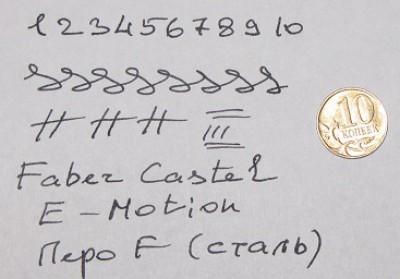 1 2 3 4 5 6 7 8 9 10
Faber Castel
E - Motion
Перо F (сталь)
10
КОПЕЕК